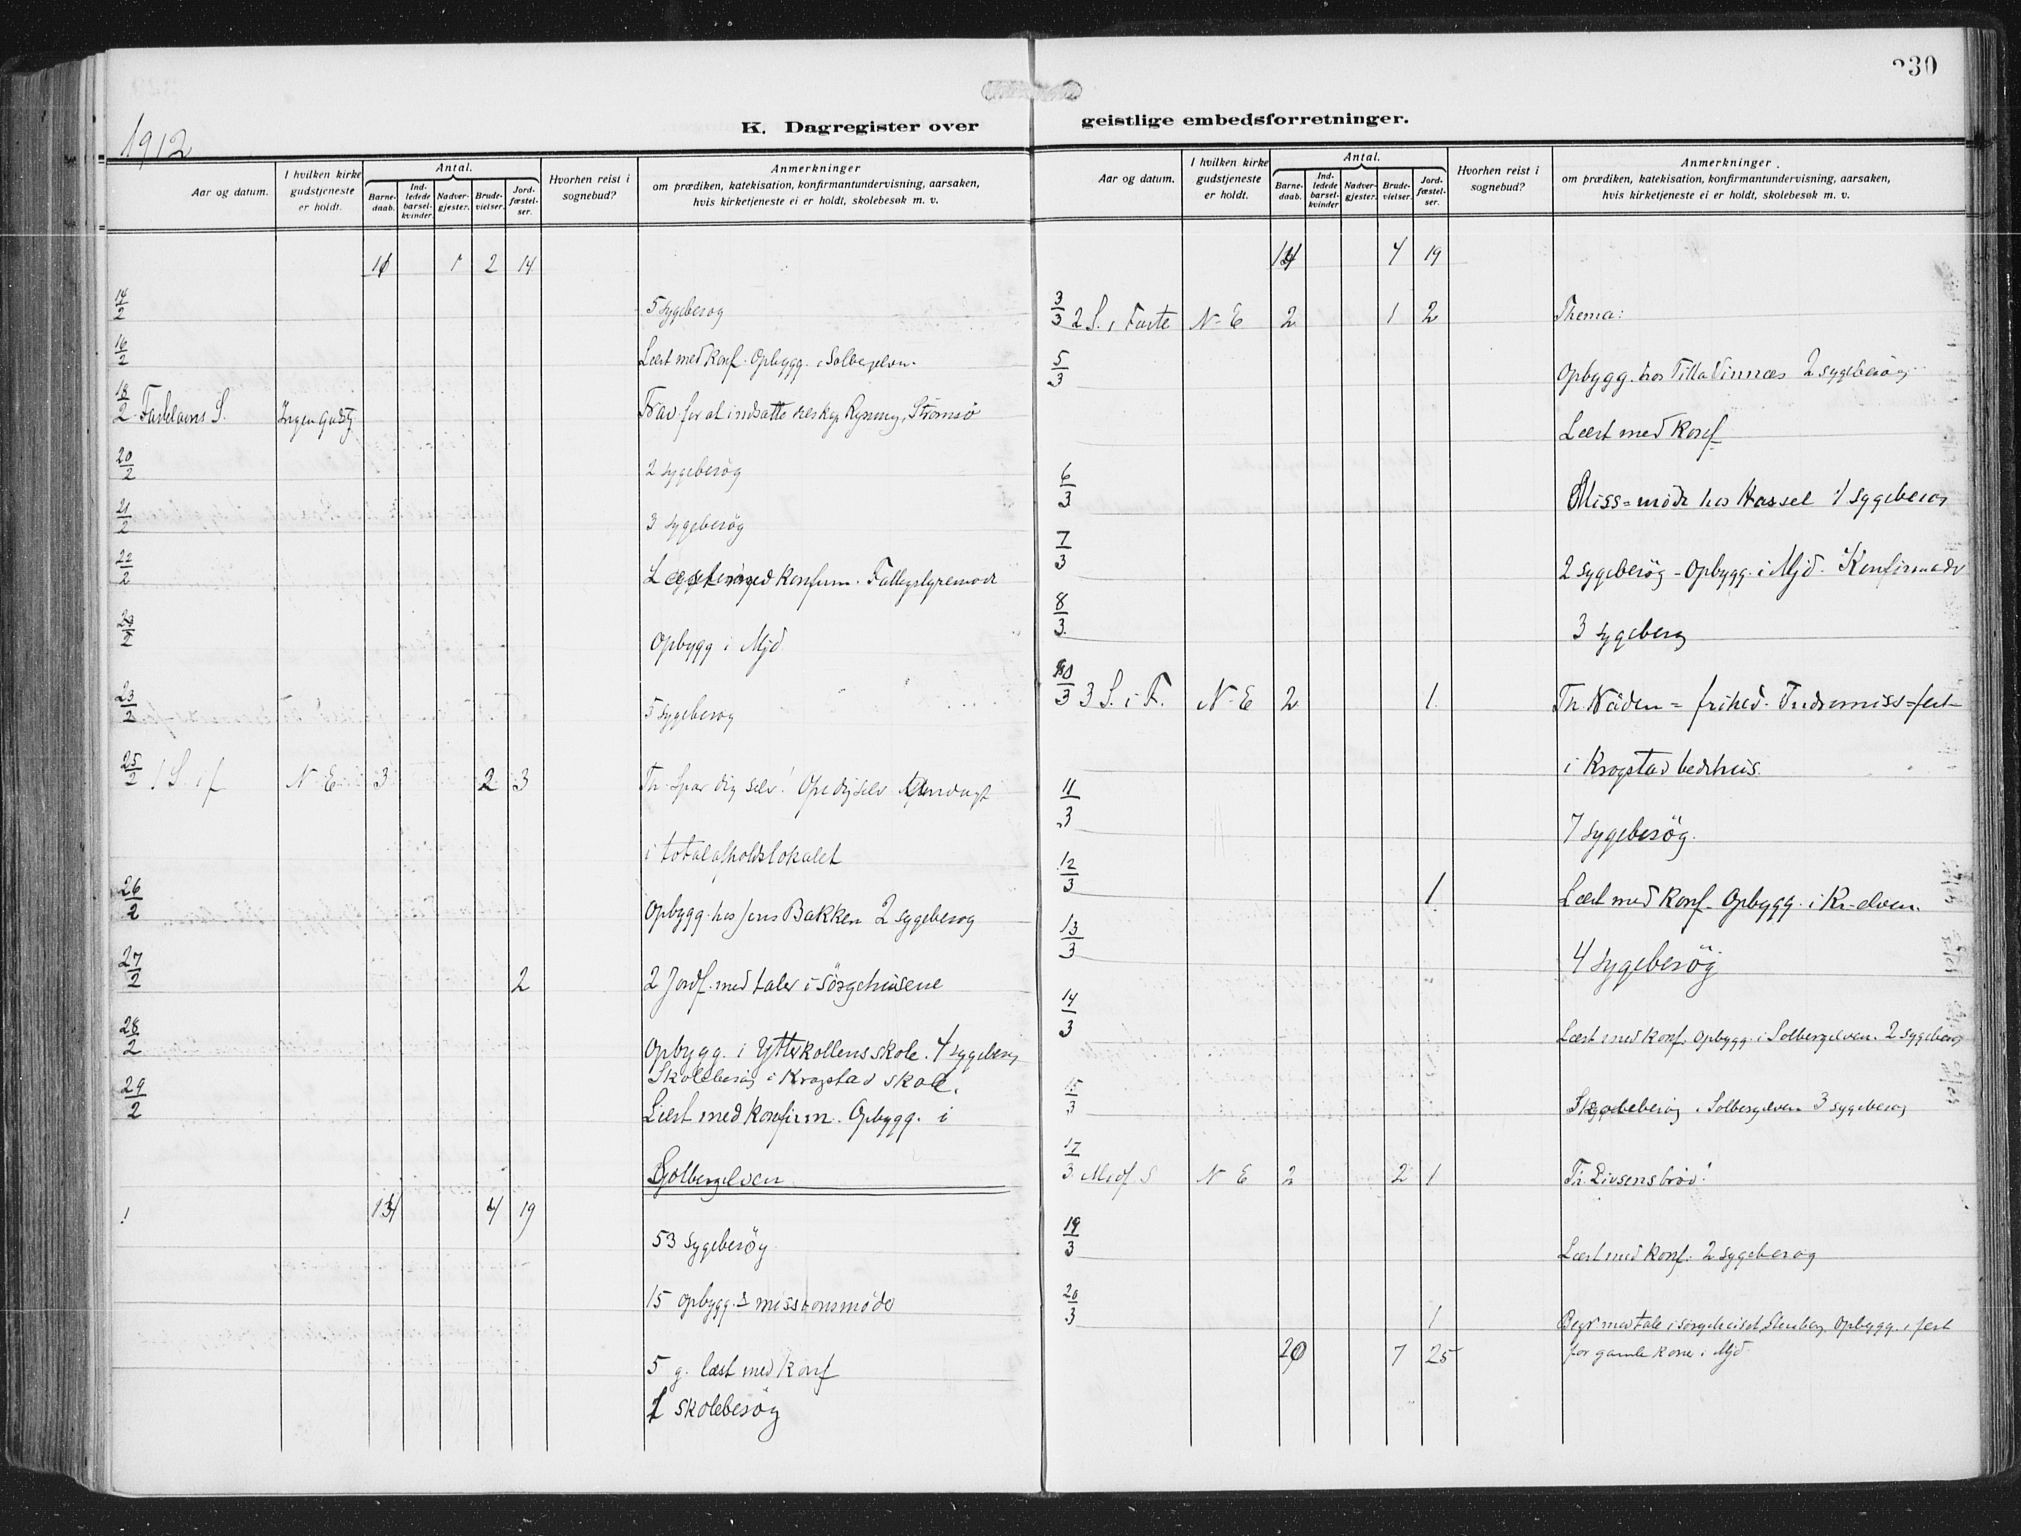 1912
K. Dagregister over
Aar og datum.
I hvilken kirke gudstjeneste er holdt.
Antal.
Barne-daab.
Ind-ledede barsel-kvinder
Nadver-gjester.
Brude-vielser.
Jord-fæstel-ser.
Hvorhen reist i sognebud?
Anmerkninger
om prædiken, katekisation, konfirmantundervisning, aarsaken,
hvis kirketjeneste ei er holdt, skolebesøk m. v.
1 2 14
14/2 5 sygebesøg
16/2 Læst med Konf. Opbygg. i Solbergelven
18/2 Fastelavns S. Ingen gudstj Fri for at indsætte reskap Ryning, Strømsø
20/2 2 sygebesøg
21/2 3 sygebesøg
22/2 Læst med Konfirm. Fattigstyremøde
Opbygg i Mjd
23/2 5 sygebesøg
25/2 1 S. i f N-E. 3 2 3 Th. Spar dig selv!
i totalafholdslokalet
26/2 Opbygg. hos Jens Bakken 2 sygebesøg
27/2 2 2 Jordf. med taler i sørgehusene
28/2 Opbygg. i Ytterkollens skole. 4 sygebesøg
Skolebesøg i Krogstad skole.
29/2 Læst med Konfirm. Opbygg. i
Solbergelven
4 19
53 sygebesøg
15 opbygg. & missionsmøde
5 g. læst med Konf
1 skolebesøg
330
geistlige embedsforretninger.
Aar og datum.
I hvilken kirke gudstjeneste er holdt.
Antal.
Barne-daab.
Ind-ledede barsel-kvinder
Nadver-gjester.
Brude-vielser.
Jord-fæstel-ser.
Hvorhen reist i sognebud?
Anmerkninger.
om prædiken, katekisation, konfirmantundervisning, aarsaken,
hvis kirketjeneste ei er holdt, skolebesøk m. v.
14 4 19
3/3 2 S. i Faste N-E 2 1 2 Thema:
5/3 Opbygg. hos Tilla Vinnæs 2 sygebesøg
Læst med Konf
6/3 Miss=møde hos Hassel 1 sygebesøg
7/3 2 sygebesøg - Opbygg. i Mjd.
8/3 3 sygebesøg
10/3 3 S. i F. N-E 2 1 Th. Nåden = frihed. Indremiss=fest
i Krogstad bedehus.
11/3 7 sygebesøg.
12/3 1 Læst med Konf- Opbygg. i Kr-elven.
13/3 4 sygebesøg
14/3 Læst med Konf. Opbygg. i Solbergelven. 2 sygebesøg
15/3 Skolebesøg i Solbergelven 3 sygebesøg
17/3 Midf S N E 2 2 1 Th. Livsens brød!
19/3 Læst med Konf. 2 sygebesøg
20/3 1 Begr med tale i sørgehuset Stenberg. Opbygg. i fest
20 7 25 for gamle Kone i Mjd